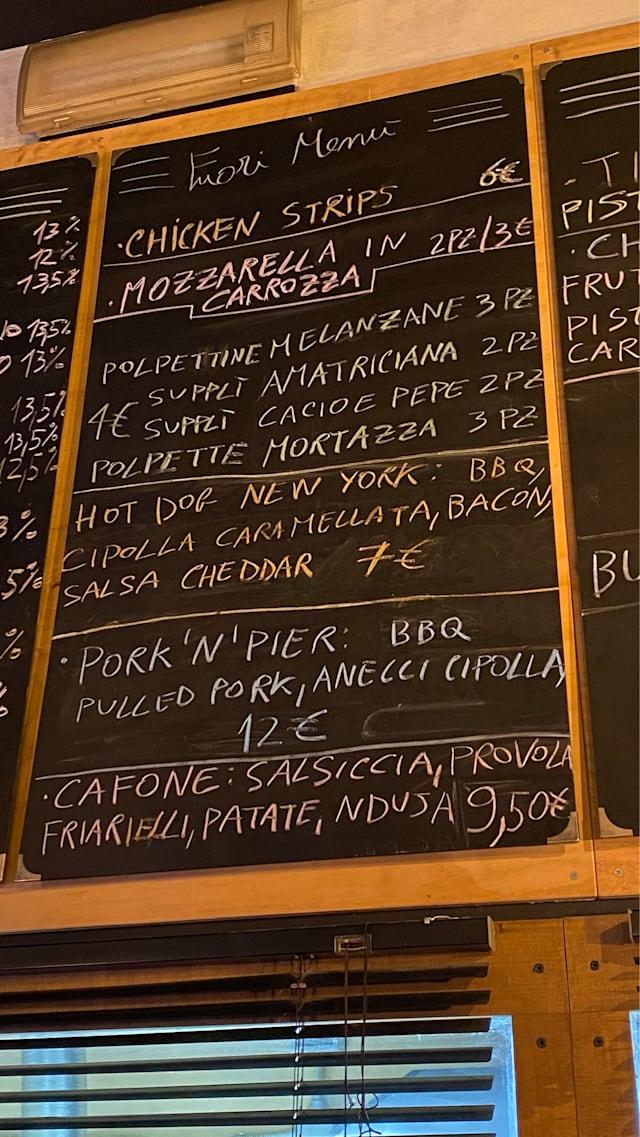 Fuori Menù
·CHICKEN STRIPS 6€
·MOZZARELLA IN 2PZ/3€
CARROZZA
POLPETTINE MELANZANE 3 PZ
SUPPLÌ AMATRICIANA 2PZ
4€ SUPPLÌ CACIOE PEPE 2PZ
POLPETTE MORTAZZA 3 PZ
HOT DOG NEW YORK: BBQ,
CIPOLLA CARAMELLATA, BACON,
SALSA CHEDDAR 7€
·PORK'N'PIER: BBQ
PULLED PORK, ANELLI CIPOLLA,
12€
·CAFONE: SALSICCIA, PROVOLA
FRIARIELLI, PATATE, NDUJA 9,50€
13%
12%
13,5%
13,5%
13%
13,5%
13,5%
12,5%
- TI
PIST
· CH
FRUT
PIST
CAR
BU